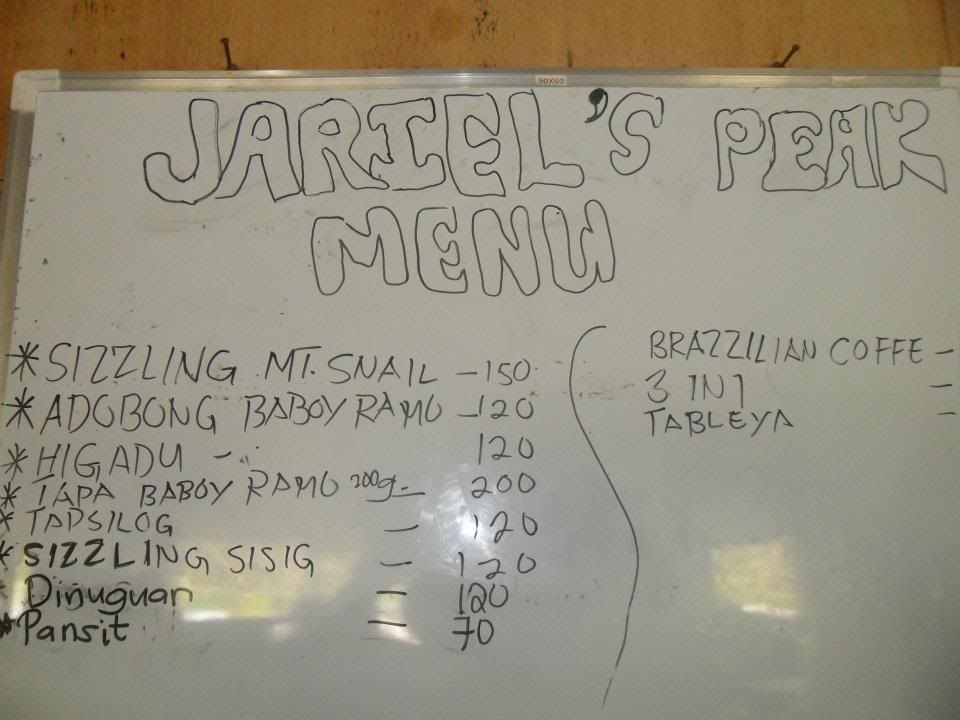 90X60
JARIEL'S PEAK
MENU
* SIZZLING MT. SNAIL - 150
* ADOBONG BABOY RAMO - 120
* HIGADU - 120
* TAPA BABOY RAMO 200g. - 200
* TAPSILOG - 120
* SIZZLING SISIG - 120
* Dinuguan - 120
* Pansit - 70
BRAZZILIAN COFFE -
3 IN 1 -
TABLEYA -